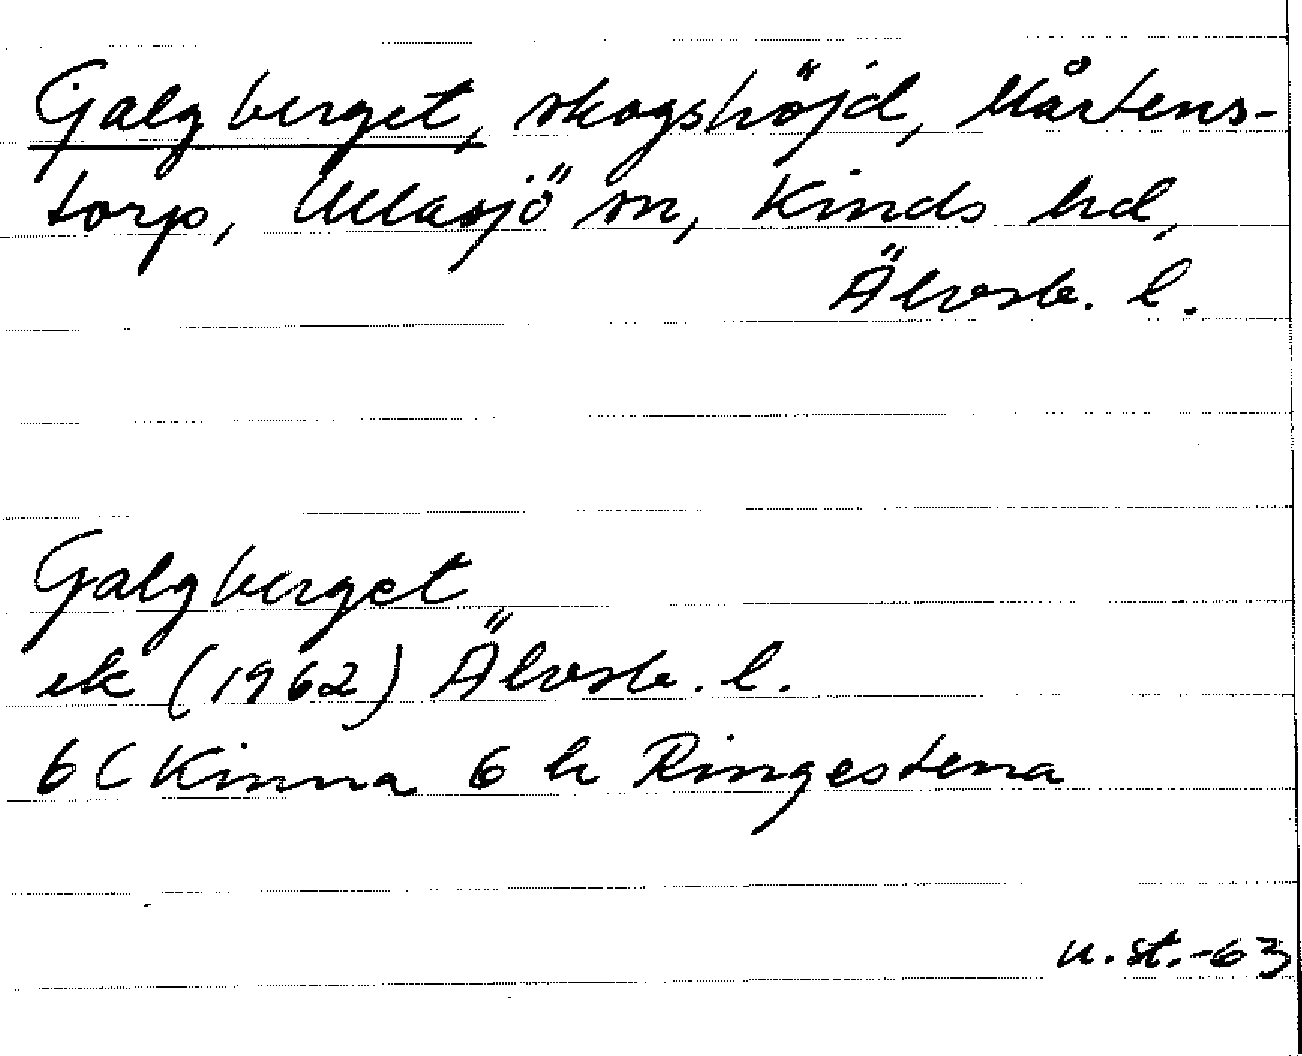 Galgberget, skogshöjd, Mårtens-
torp, Ullasjö sn, Kinds hd,
Älvsb. l.
Galgberget
ek (1962) Älvsb. l.
6 C Kinna 6 h Ringestena
u. st. -63